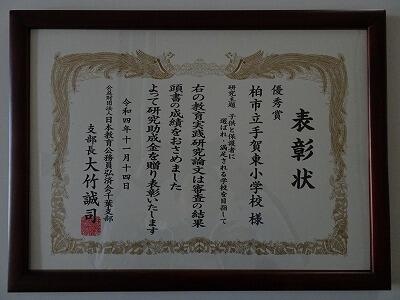 表彰状
優秀賞
柏市立手賀東小学校 様
研究主題 子供と保護者に
選ばれ、満足される学校を目指して
右の教育実践研究論文は審査の結果
頭書の成績をおさめました
よって研究助成金を贈り表彰いたします
令和四年十一月十四日
公益財団法人日本教育公務員弘済会千葉支部
支部長 大竹誠司